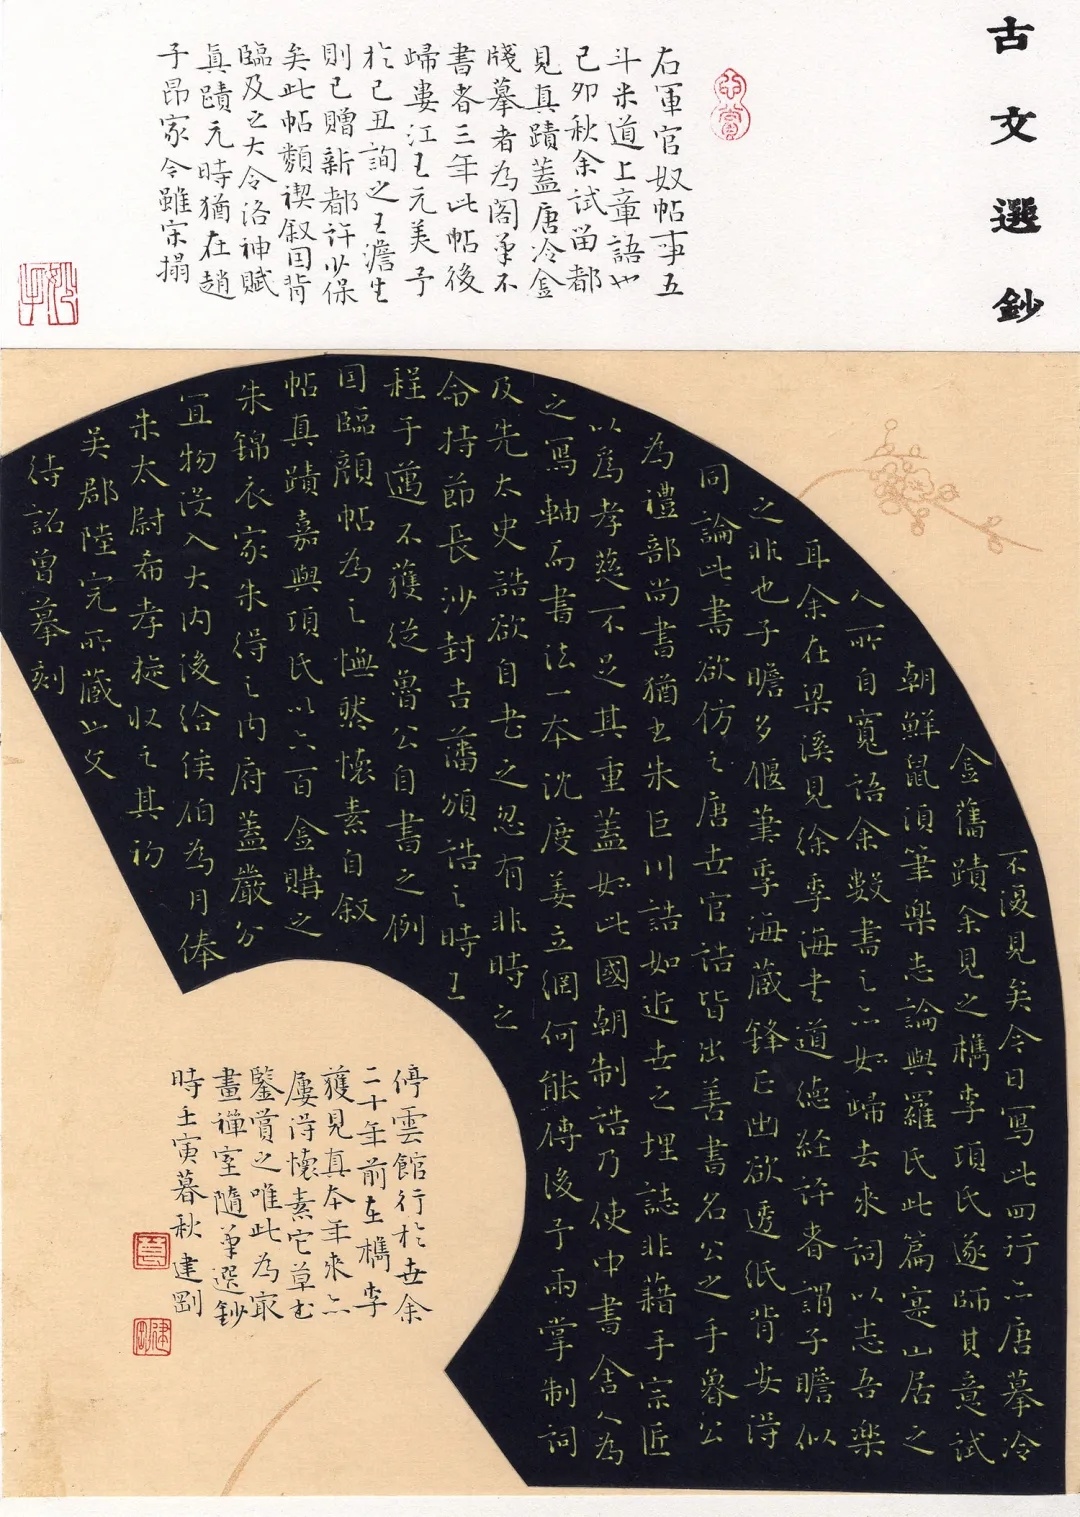 古文選鈔
右軍官奴帖事五
斗米道上章語也
己卯秋余試留都
見真蹟蓋唐冷金
牋摹者為閣筆不
書者三年此帖後
歸婁江王元美予
於己丑詢之王澹生
則已贈新都許少保
矣此帖類禊叙因背
臨及之大令洛神賦
真蹟元時猶在趙
子昂家今雖宋搨
不復見矣今日寫此四行亦唐摹冷
金舊蹟余見之檇李項氏遂師其意試
朝鮮鼠須筆樂志論與羅氏此篇寔山居之
人所自寬語余數書之亦如歸去來詞以志吾樂
耳余在梁溪見徐季海書道德經許者謂子瞻似
之非也子瞻多偃筆季海藏鋒正出欲透紙背安得
同論此書欲仿之唐世官誥皆出善書名公之手魯公
為禮部尚書猶書朱巨川誥如近世之埋誌非藉手宗匠
以為孝慈不足其重蓋如此國朝制誥乃使中書舍人為
之寫軸而書法一本沈度姜立綱何能傳後予兩掌制詞
及先太史誥欲自書之忽有非時之
命持節長沙封吉藩頒誥之時王
程于邁不獲從魯公自書之例
因臨顏帖為之憮然懷素自叙
帖真蹟嘉興項氏以六百金購之
朱錦衣家朱得之內府蓋嚴分
宜物沒入大內後給侯伯為月俸
朱太尉希孝旋收之其初
吳郡陸完所藏也文
待詔曾摹刻
停雲館行於世余
二十年前在檇李
獲見真本年來亦
屢得懷素它草書
鑒賞之唯此為最
畫禪室隨筆選鈔
時壬寅暮秋建剛